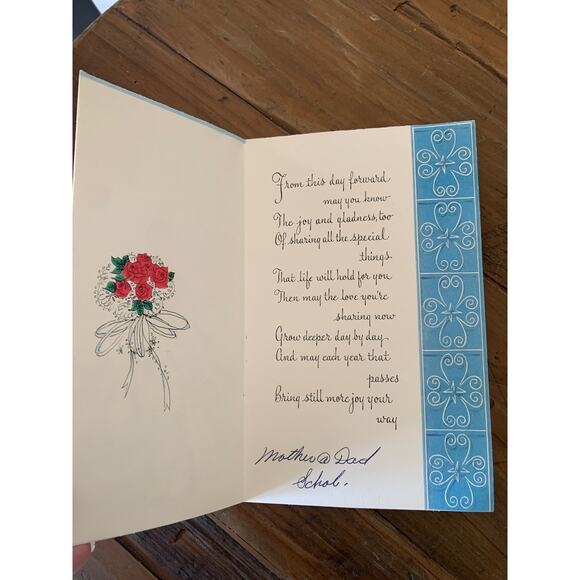 From this day forward
may you know
The joy and gladness, too
Of sharing all the special
things
That life will hold for you
Then may the love you're
sharing now
Grow deeper day by day
And may each year that
passes
Bring still more joy your
way
Mother @ Dad
Schol.